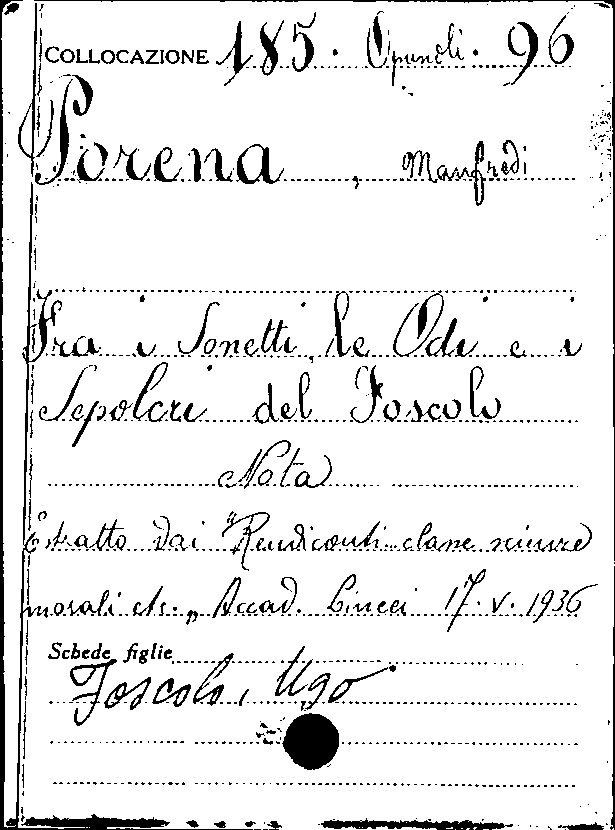 COLLOCAZIONE 185. Opuscoli. 96
Porena, Manfredi
Fra i Sonetti, le Odi e i
Sepolcri del Foscolo
Nota
Estratto dai "Rendiconti classe scienze
morali etc." Accad. Lincei 17.V.1936
Schede figlie
Foscolo, Ugo